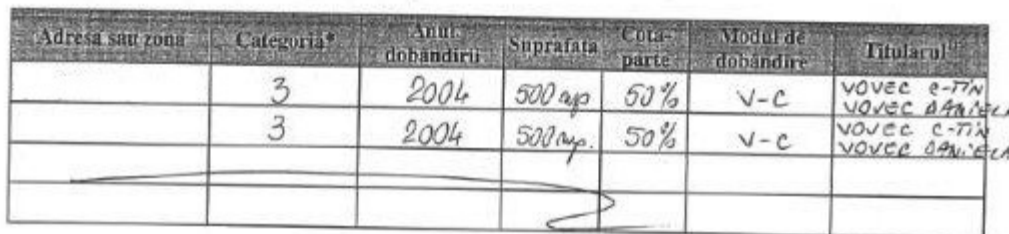 Adresa sau zona Categoria* Anul dobândirii Suprafața Cota-parte Modul de dobândire Titularul
3 2004 500 mp 50% V-C VOVEC C-TIN VOVEC DANIELA
3 2004 500 mp. 50% V-C VOVEC C-TIN VOVEC DANIELA